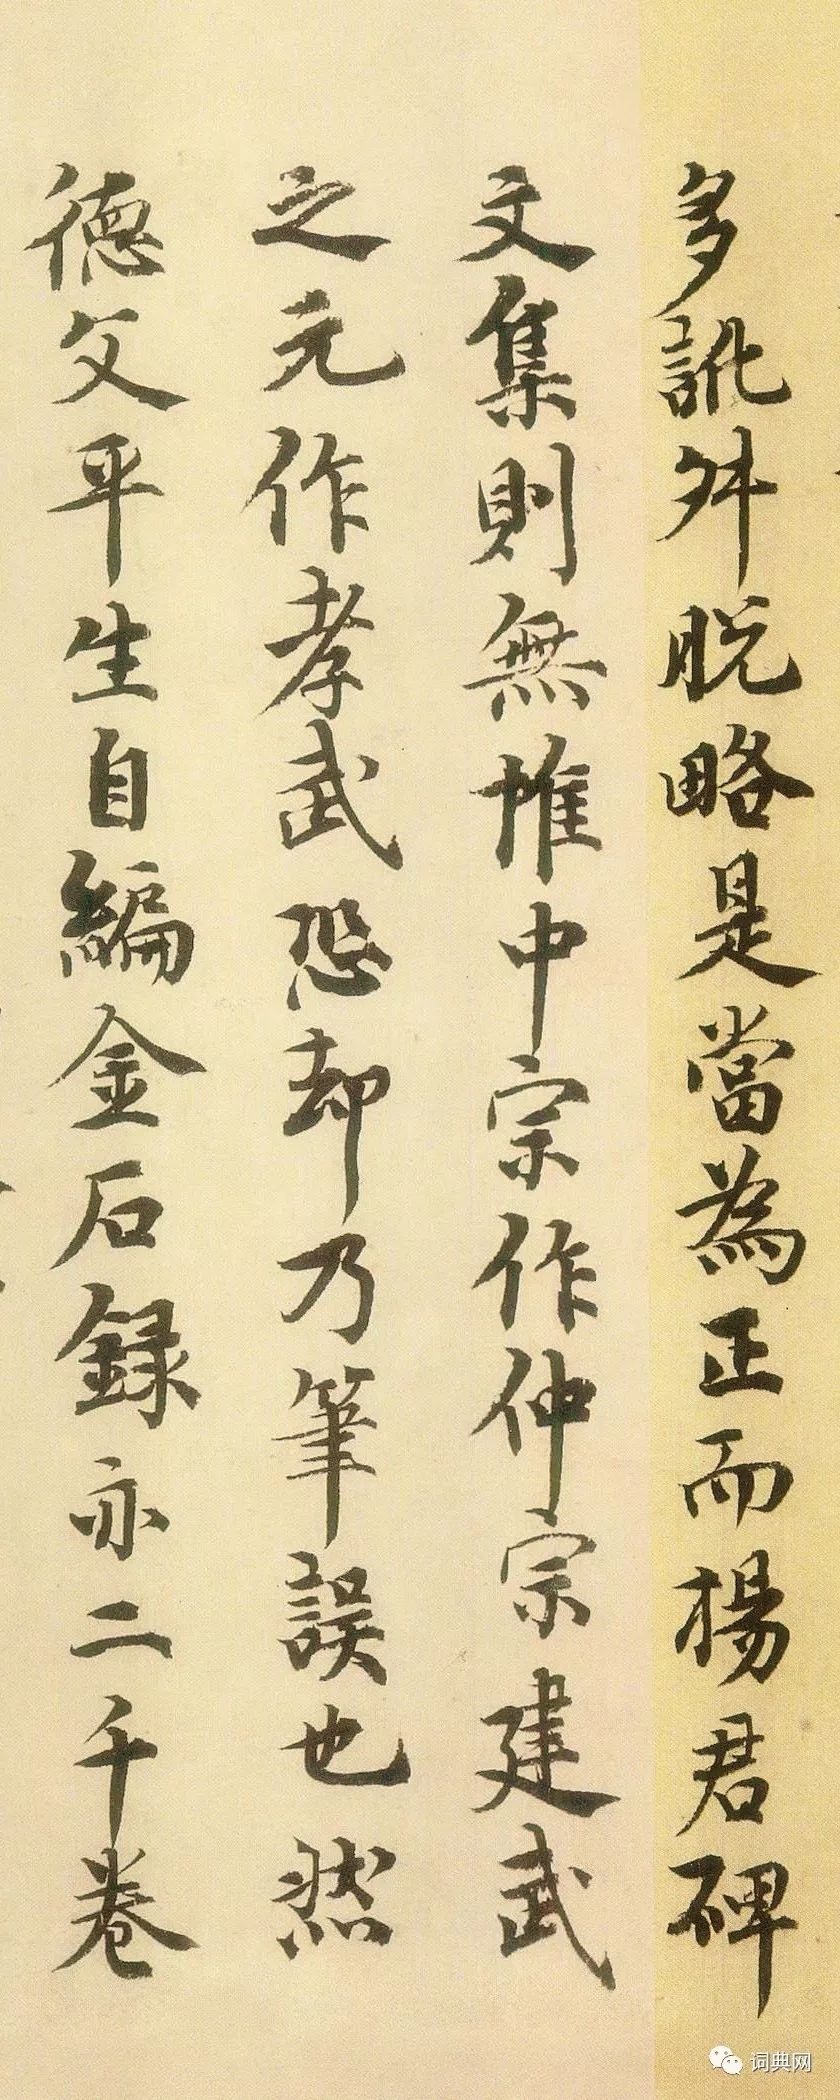 多訛舛脱略是當為正而楊君碑
文集則無惟中宗作仲宗建武
之元作孝武恐却乃筆誤也然
德父平生自編金石録亦二千卷
词典网